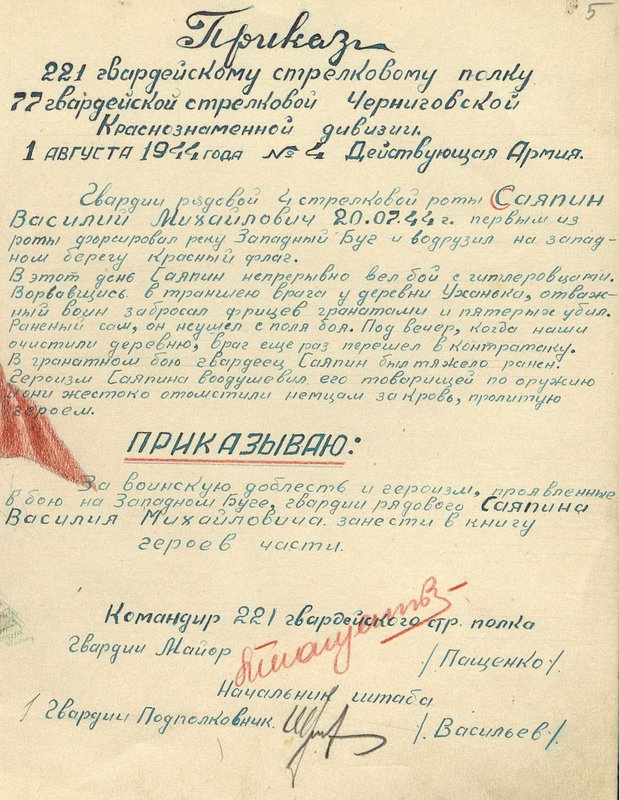 5
Приказ
221 гвардейскому стрелковому полку
77 гвардейской стрелковой Черниговской
Краснознаменной дивизии.
1 АВГУСТА 1944 года № 4 Действующая Армия.
Гвардии рядовой 4 стрелковой роты Саяпин
Василий Михайлович 20.07.44 г. первым из
роты форсировал реку Западный Буг и водрузил на запад-
ном берегу Красный флаг.
В этот день Саяпин непрерывно вел бой с гитлеровцами.
Ворвавшись в траншею врага у деревни Ужанька, отваж-
ный воин забросал фрицев гранатами и пятерых убил.
Раненый сам, он неушел с поля боя. Под вечер, когда наши
очистили деревню, враг еще раз перешел в контратаку.
В гранатном бою гвардеец Саяпин был тяжело ранен.
Героизм Саяпина воодушевил его товарищей по оружию
и они жестоко отомстили немцам за кровь, пролитую
героем.
ПРИКАЗЫВАЮ:
За воинскую доблесть и героизм, проявленные
в бою на Западном Буге, гвардии рядового Саяпина
Василия Михайловича занести в книгу
героев части.
Командир 221 гвардейского стр. полка
Гвардии Майор /Пащенко/.
Начальник штаба
Гвардии Подполковник /Васильев/.